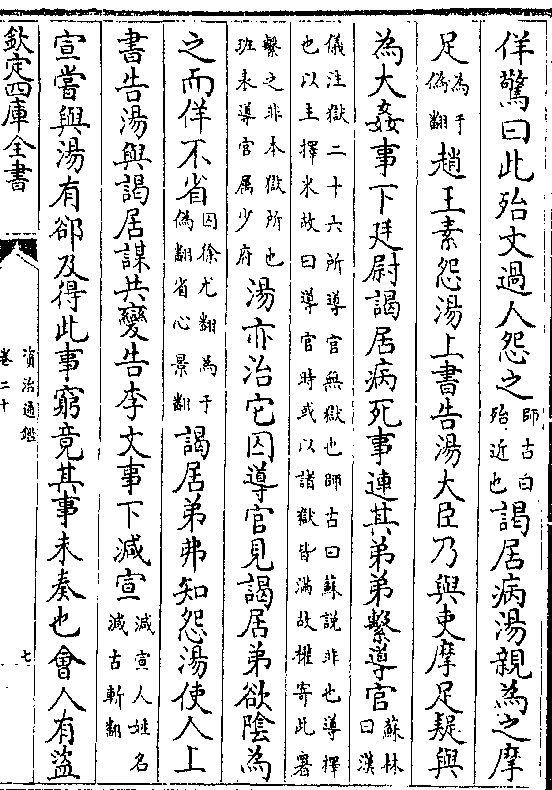 佯驚曰此殆文過人怨之師古曰殆近也謁居病湯親為之摩
足為于偽翻趙王素怨湯上書告湯大臣乃與吏摩足疑與
為大姦事下廷尉謁居病死事連其弟弟繫導官蘇林曰漢
儀注獄二十六所導官無獄也師古曰蘇說非也導擇
也以主擇米故曰導官時或以諸獄皆滿故權寄此署
繫之非本獄所也班表導官属少府湯亦治它囚導官見謁居弟欲陰為
之而佯不省囚徐尤翻為于偽翻省心景翻謁居弟弗知怨湯使人上
書告湯與謁居謀共變告李文事下減宣減宣人姓名減古斬翻
宣嘗與湯有郤及得此事窮竟其事未奏也會人有盜
欽定四庫全書
資治通鑑
卷二十
七